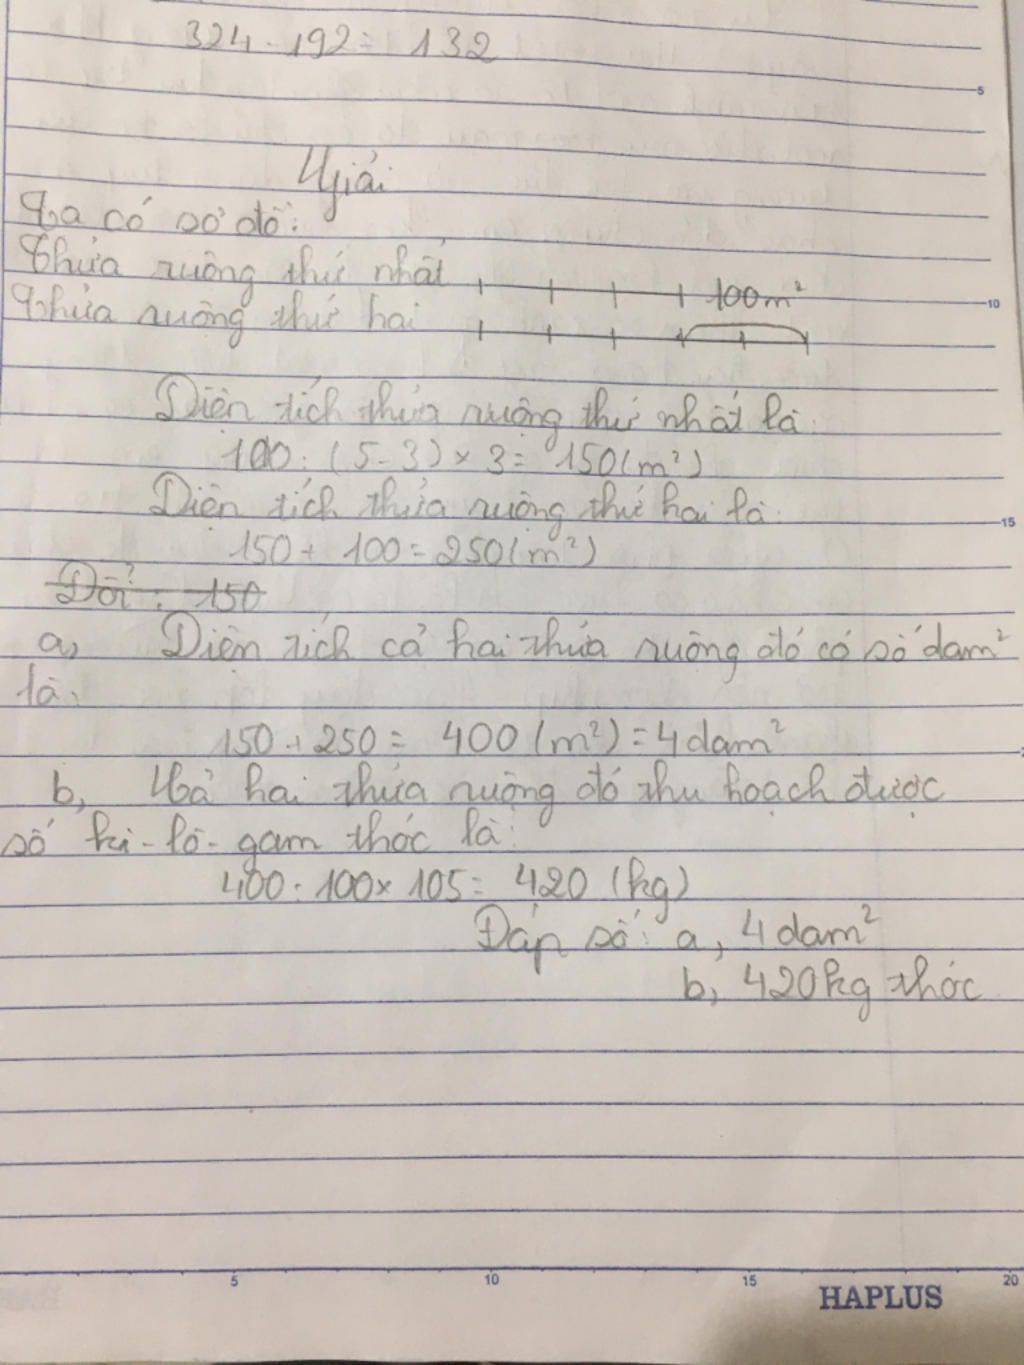 324 - 192 = 132
5
Giải
Ta có sơ đồ:
Thửa ruộng thứ nhất
100m²
10
Thửa ruộng thứ hai
Diện tích thửa ruộng thứ nhất là:
100 : (5 - 3) × 3 = 150 (m²)
Diện tích thửa ruộng thứ hai là:
15
150 + 100 = 250 (m²)
Đổi : 150
a, Diện tích cả hai thửa ruộng đó có số dam²
là:
150 + 250 = 400 (m²) = 4 dam²
b, Cả hai thửa ruộng đó thu hoạch được
số ki-lô-gam thóc là:
400 : 100 × 105 = 420 (kg)
Đáp số: a, 4 dam²
b, 420kg thóc
5 10 15 20
HAPLUS